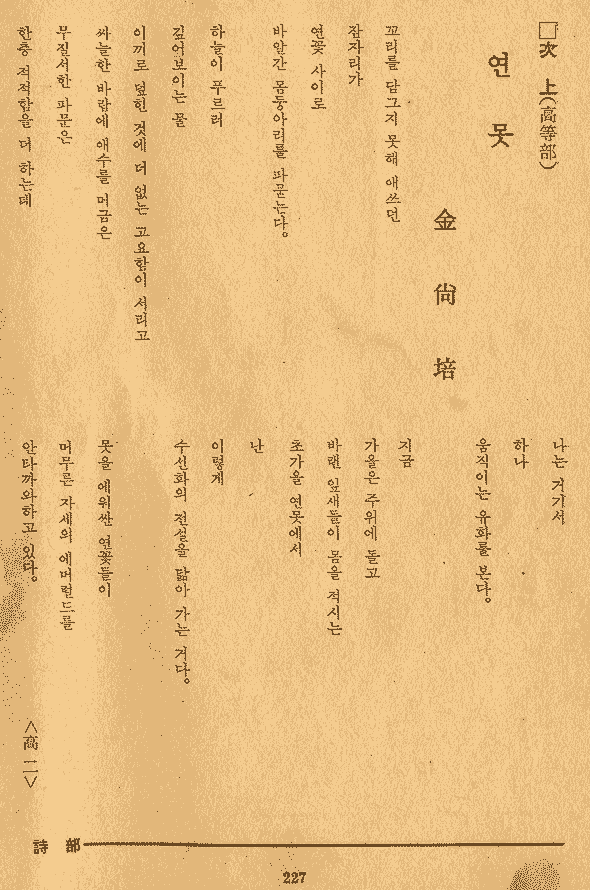 □次 上(高等部)
연 못
金 尙 培
꼬리를 담그지 못해 애쓰던
잠자리가
연꽃 사이로
바알간 몸뚱아리를 파묻는다。
하늘이 푸르러
깊어보이는 물
이끼로 덮힌 것에 더 없는 고요함이 서리고
싸늘한 바람에 애수를 머금은
무질서한 파문은
한층 적적함을 더 하는데
나는 거기서
하나
움직이는 유화를 본다。
지금
가을은 주위에 돌고
바랜 잎새들이 몸을 적시는
초가을 연못에서
난
이렇게
수선화의 전설을 닮아 가는 거다。
못을 에워싼 연꽃들이
머무른 자세의 에머럴드를
안타까와하고 있다。
<高 二>
詩 部
227